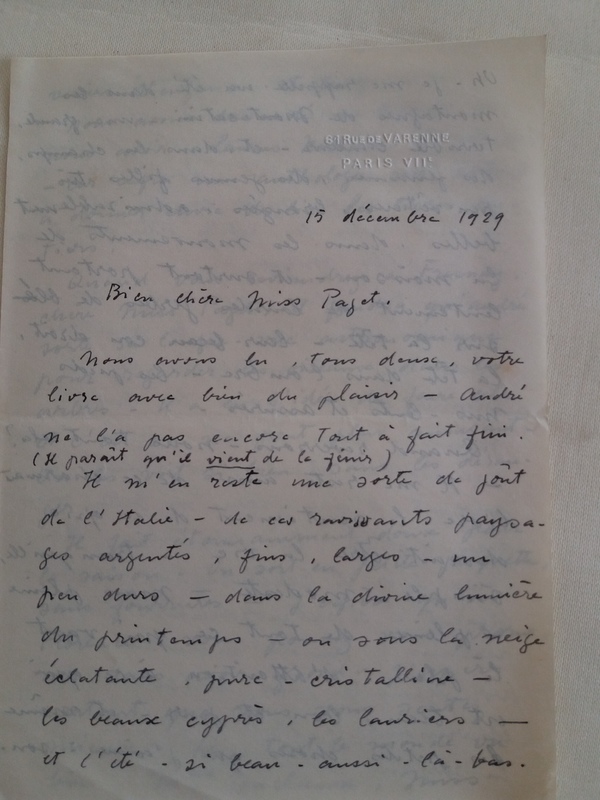 61 RUE DE VARENNE
PARIS VIIᵉ
15 décembre 1929
Bien chère Miss Paget.
Nous avons lu, tous deux, votre
livre avec bien du plaisir — André
ne l'a pas encore tout à fait fini.
(Il paraît qu'il vient de le finir)
Il m'en reste une sorte de goût
de l'Italie — de ces ravissants paysa-
ges argentés, fins, larges — un
peu durs — dans la divine lumière
du printemps — ou sous la neige
éclatante, pure - cristalline —
les beaux cyprès, les lauriers —
et l'été - si beau - aussi - là-bas.